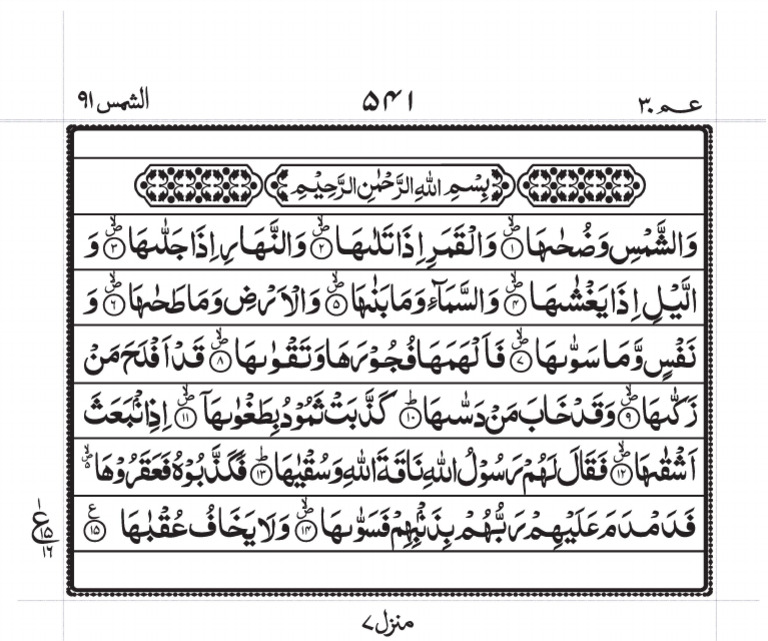 عـم ٣٠ ٥٤١ الشمس ٩١
بِسْمِ اللهِ الرَّحْمٰنِ الرَّحِيْمِ
وَالشَّمْسِ وَضُحٰىهَا ۙ﴿۱﴾ وَالْقَمَرِ اِذَا تَلٰىهَا ۙ﴿۲﴾ وَالنَّهَارِ اِذَا جَلّٰىهَا ۙ﴿۳﴾ وَ
الَّيْلِ اِذَا يَغْشٰىهَا ۙ﴿۴﴾ وَالسَّمَآءِ وَمَا بَنٰىهَا ۙ﴿۵﴾ وَالْاَرْضِ وَمَا طَحٰىهَا ۙ﴿۶﴾ وَ
نَفْسٍ وَّمَا سَوّٰىهَا ۙ﴿۷﴾ فَاَلْهَمَهَا فُجُوْرَهَا وَتَقْوٰىهَا ۙ﴿۸﴾ قَدْ اَفْلَحَ مَنْ
زَكّٰىهَا ۙ﴿۹﴾ وَقَدْ خَابَ مَنْ دَسّٰىهَا ؕ﴿۱۰﴾ كَذَّبَتْ ثَمُوْدُ بِطَغْوٰىهَاۤ ۙ﴿۱۱﴾ اِذِ انْۢبَعَثَ
اَشْقٰىهَا ۙ﴿۱۲﴾ فَقَالَ لَهُمْ رَسُوْلُ اللهِ نَاقَةَ اللهِ وَسُقْيٰهَا ؕ﴿۱۳﴾ فَكَذَّبُوْهُ فَعَقَرُوْهَا ۙ
فَدَمْدَمَ عَلَيْهِمْ رَبُّهُمْ بِذَنْۢبِهِمْ فَسَوّٰىهَا ۙ﴿۱۴﴾ وَلَا يَخَافُ عُقْبٰهَا ﴿۱۵﴾ ع
۱
ع ۱۵
۱۶
منزل ۷